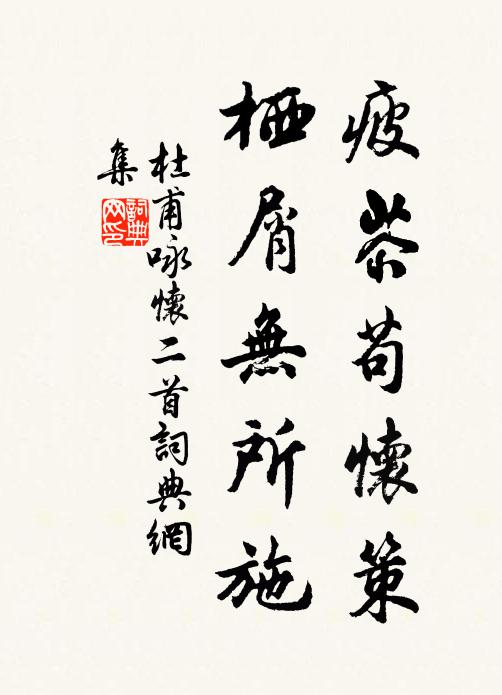 疲苶苟懷策
栖屑無所施
杜甫咏懷二首詞典網
集
詞典
网印